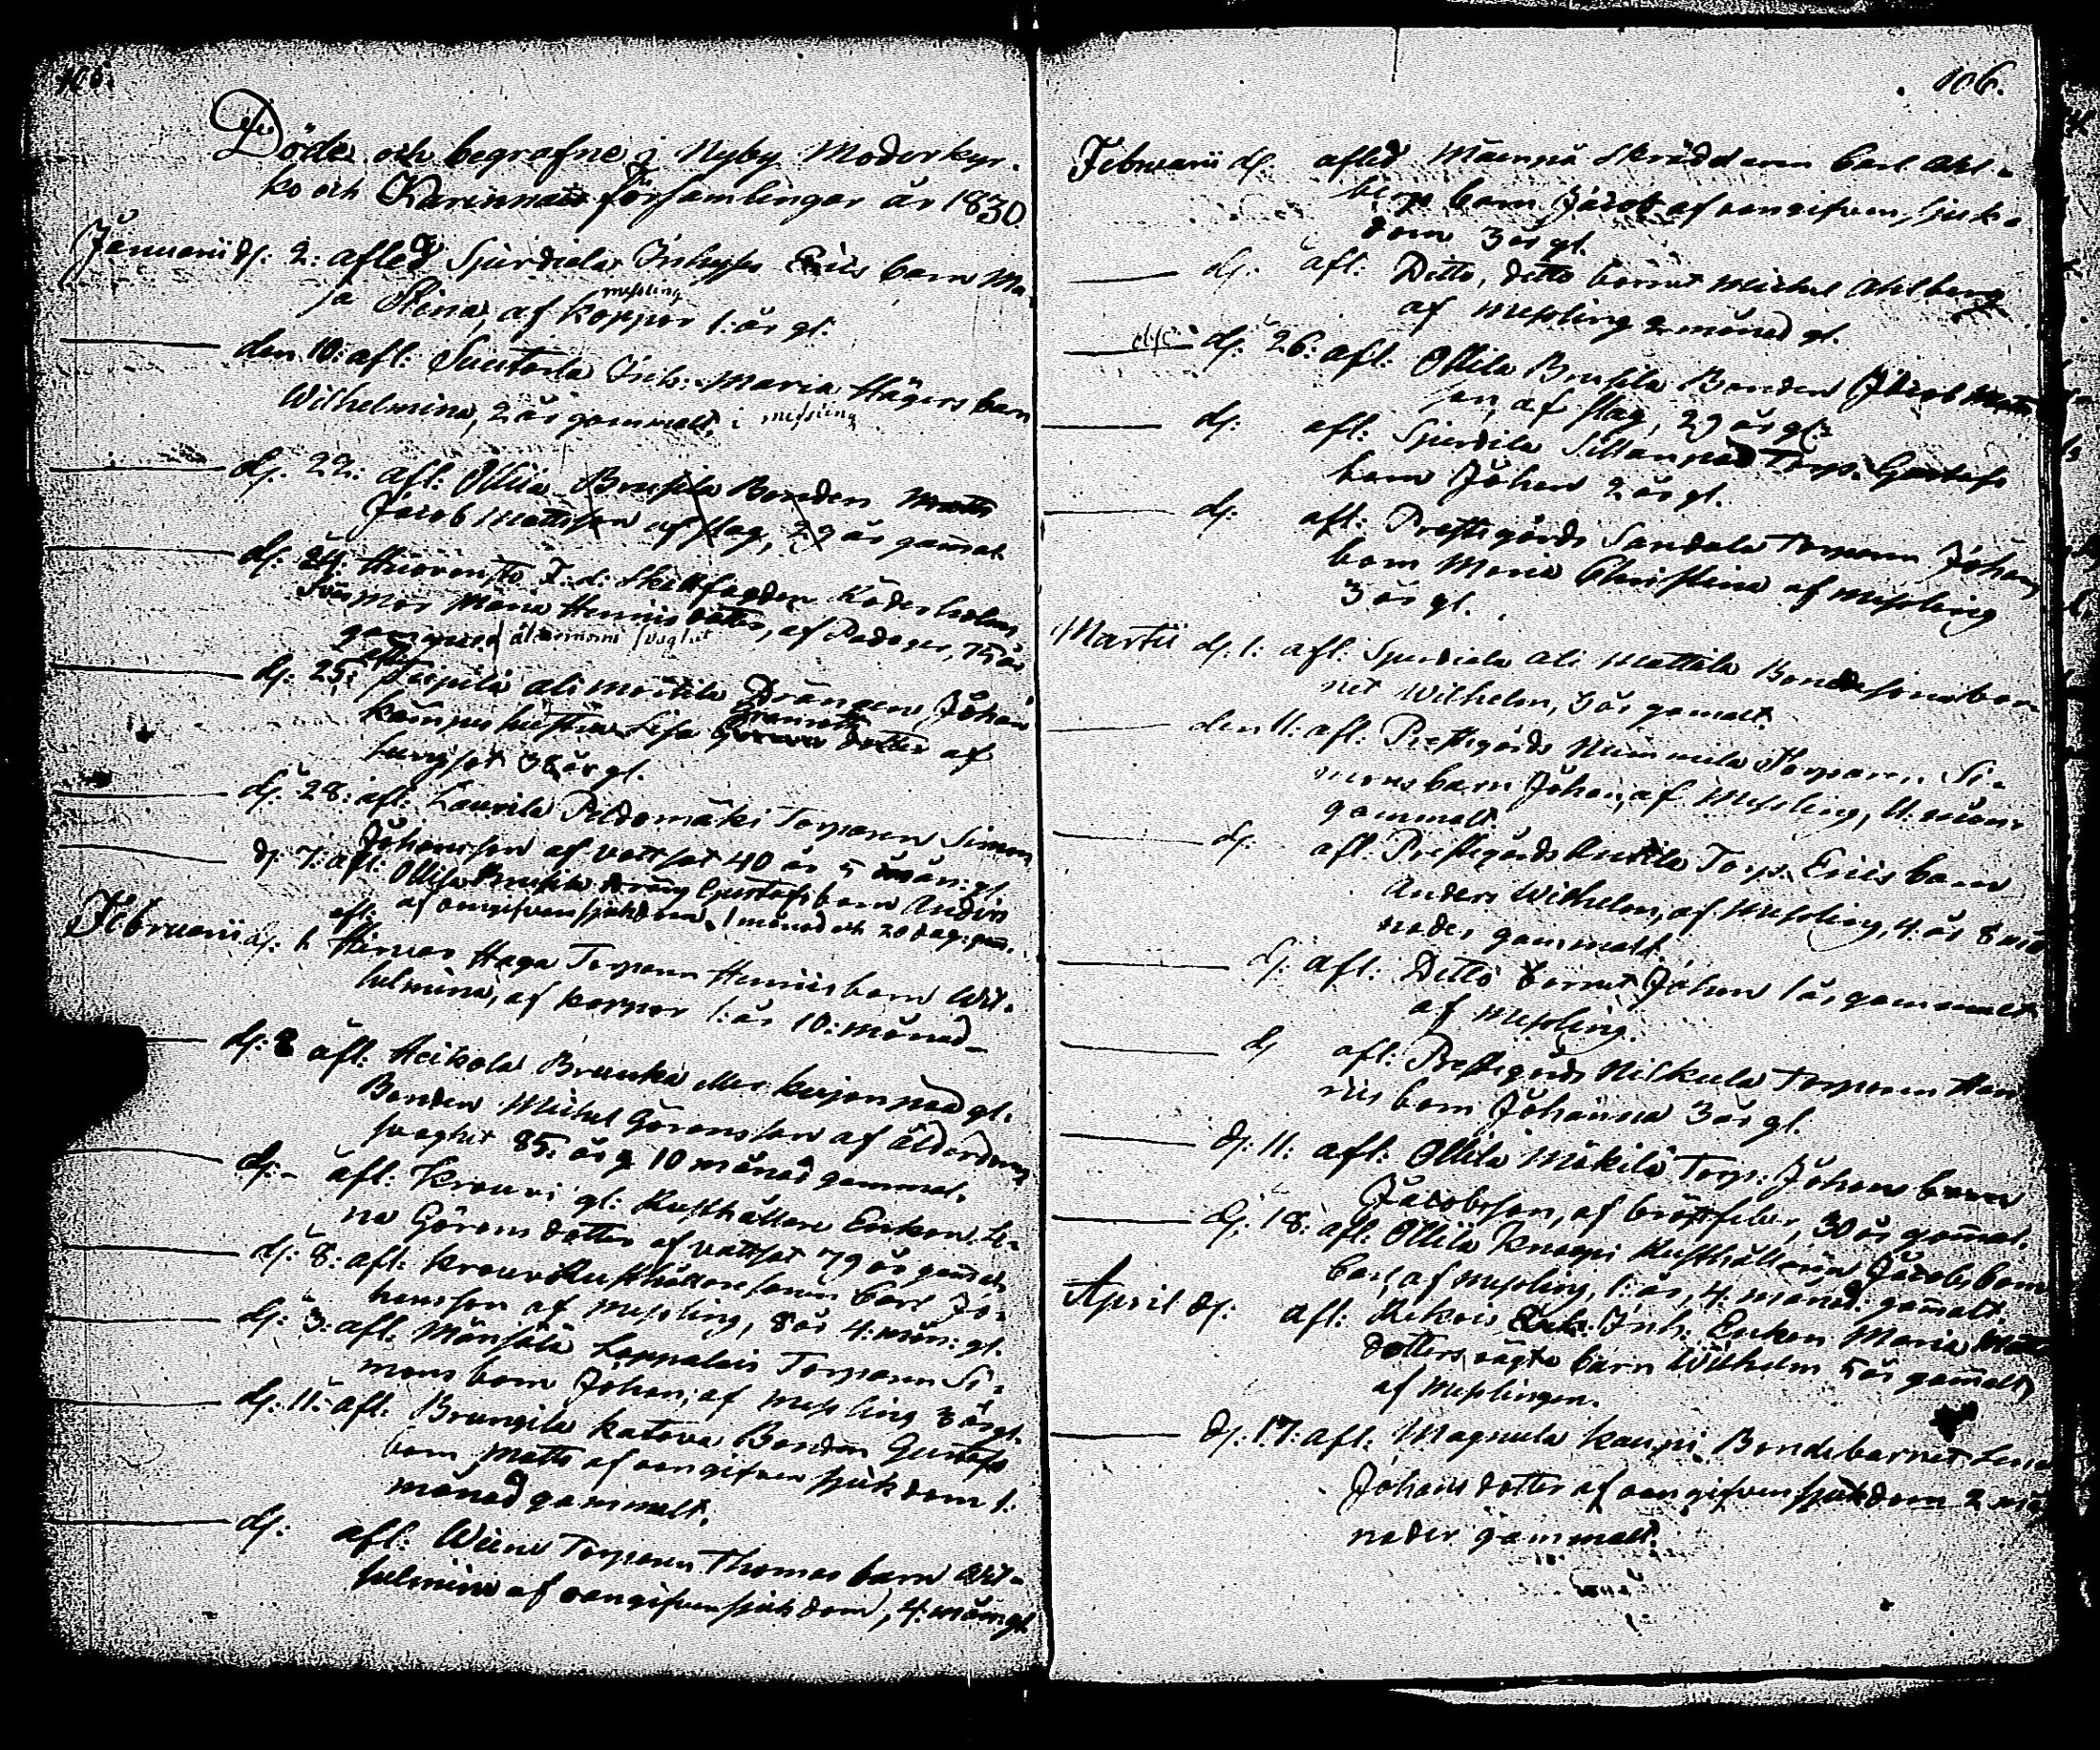 Döde och begrafne i Nyby Moderkyr-
ko och Karinnais församlingar år 1830.
Januarii dj: 2: afled Sjurdiala Inhyses Eriis barn Ma-
ja Stina, af koppor 1: år gl:
messling
den 10: afl: Suutorla Inh: Maria Hägers barn
Wilhelmina, 2 år gammalt, i messling
dj. 22: afl: Ollila Brusila Bonden Matts
Jacob Mattsson af slag, 29 år gamal
dj: 24: T: d: Skallfogden Köderholms
Svärmor Maria Henriisdotter, af Podager, 75 år
gammal / ålderdoms svaghet
dj. 25: afl: ali Drängen Johan
hustru Lisa dotter af
lungsot 38 år gl.
dj. 28: afl: Laurila Peldomäki Torparen Simon
Johansson af vattsot 40 år 5 mån: gl.
dj. 7: afl: Ollila Brusila dräng Gustafs barn Anders
af oangifven sjukdom, 1 månad och 20 dag: gam.
Februarii dj: 1. afl: Haga Torparen Henriis barn Wil-
helmina, af koppor 1: år 10: månad-
dj: 2 afl: Heikola Bruuka eller gl.
Bonden Michel Göransson af ålderdoms
svaghet 85: år 10 månad gammal.
dj: - afl: Krouvi gl: Rusthållare Enkan Li-
na Göransdotter af vattsot 79 år gamal
dj: 8: afl: Krouvi Rusthållaresonen Carl Jo-
hansson af messling, 8 år 4: mån: gl.
dj: 3: afl: Mänsälä Torparen Si-
mons barn Johan, af messling 3 år gl.
dj. 11: afl: Brungila katova Bonden Gustafs
barn Matts af oangifven sjukdom 1:
månad gammalt.
dj: afl: Torparen Thomas barn Wil-
helmina af oangifven sjukdom, 4: mån: gl
106.
Februarii dj. afled Skräddaren Carl Ahl-
bergs barn Jacob af oangifven sjuk-
dom 3 år gl.
dj. afl: Ditto, ditto barnet Michel Ahlberg
af messling 2 månad gl.
dj: 26: afl: Ollila Brusila Bonden Jacob Matts
son, af slag, 29 år gl:
dj. afl: Sjurdila Sillanpää Torp: Gustafs
barn Johan 2 år gl.
dj. afl: Prestgårds Sandala Torparen Johans
barn Maria Christina af messling
3 år gl.
Martii dj. 1: afl: Sjurdiala ali Mattila Bondesons bar-
net Wilhelm, 3 år gamalt.
den 11: afl: Prestgårds Torparen Si-
mons barn Johan, af messling, 11. mån:
gammalt.
dj. afl: Prestgårds Torp: Eriis barn
Anders Wilhelm, af messling, 4: år 8 må
nader gammalt.
dj: afl: Ditto barnet Johan 1 år gammalt
af messling.
dj afl: Prestgårds Torparen Hen
riis barn Johanna 3 år gl.
dj. 11: afl: Ollila Mäkilä Torp: Johan
Jacobsson, af bröstfeber, 30 år gamal.
dj. 18: afl: Ollila Knaapi Rusthållaren Jacobs barn
Carl af messling, 1: år, 4: månad: gamalt.
April dj: afl: Inh: Enkan Maria
dotters oägta barn Wilhelm 5 år gamalt
af messlingen.
dj. 17: afl: Magnula kaupi Bondebarnet Lena
Johansdotter af oangifven sjukdom 2 må
nader gammalt.